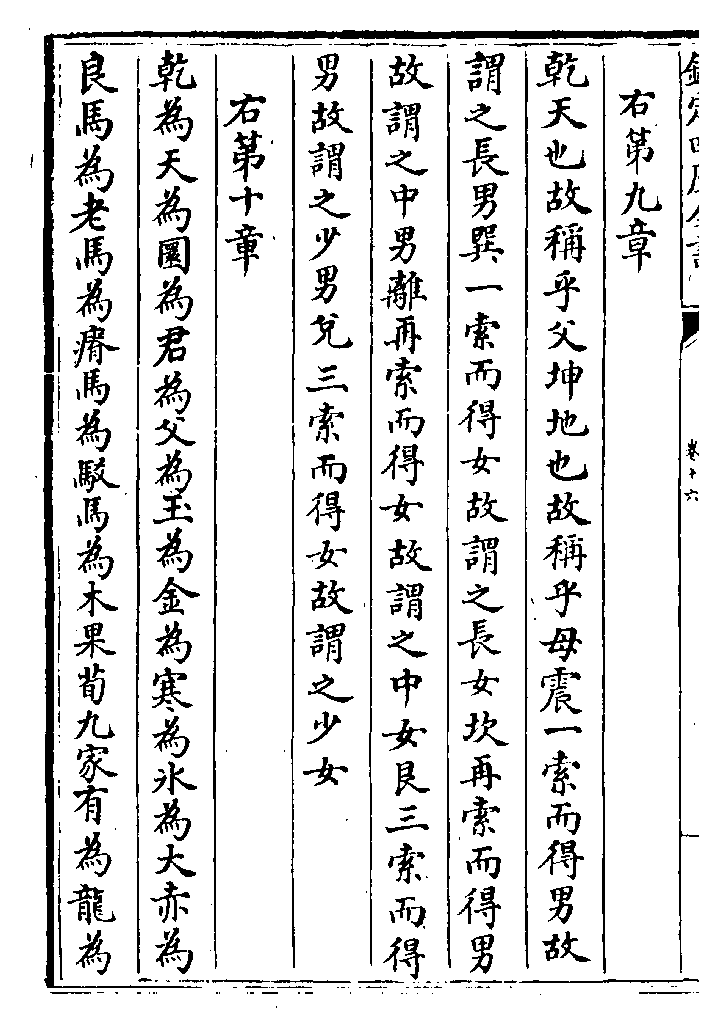 欽定四庫全書
卷十六
右第九章
乾天也故稱乎父坤地也故稱乎母震一索而得男故
謂之長男巽一索而得女故謂之長女坎再索而得男
故謂之中男離再索而得女故謂之中女艮三索而得
男故謂之少男兌三索而得女故謂之少女
右第十章
乾為天為圜為君為父為玉為金為寒為冰為大赤為
良馬為老馬為瘠馬為駁馬為木果荀九家有為龍為